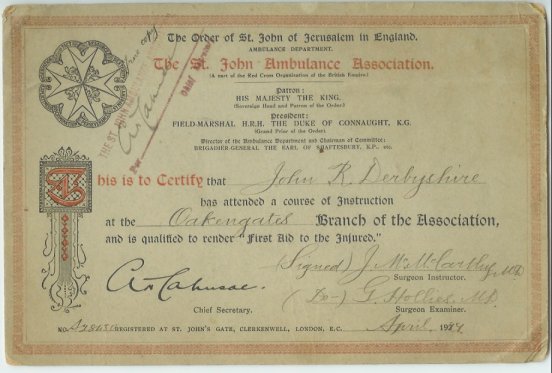 The Order of St. John of Jerusalem in England.
AMBULANCE DEPARTMENT.
The St. John Ambulance Association.
(A part of the Red Cross Organization of the British Empire.)
Patron:
HIS MAJESTY THE KING.
(Sovereign Head and Patron of the Order.)
President:
FIELD-MARSHAL H.R.H. THE DUKE OF CONNAUGHT, K.G.
(Grand Prior of the Order.)
Director of the Ambulance Department and Chairman of Committee:
BRIGADIER-GENERAL THE EARL OF SHAFTESBURY, K.P., etc.
This is to Certify that John R. Derbyshire
has attended a course of Instruction
at the Oakengates Branch of the Association,
and is qualified to render "First Aid to the Injured."
(Signed) J. McCarthy, MD
Surgeon Instructor.
(Do-) G. Hollies, MD.
Chief Secretary.
Surgeon Examiner.
NO. REGISTERED AT ST. JOHN'S GATE, CLERKENWELL, LONDON, E.C. April, 19
true copy
THE ST. JOHN